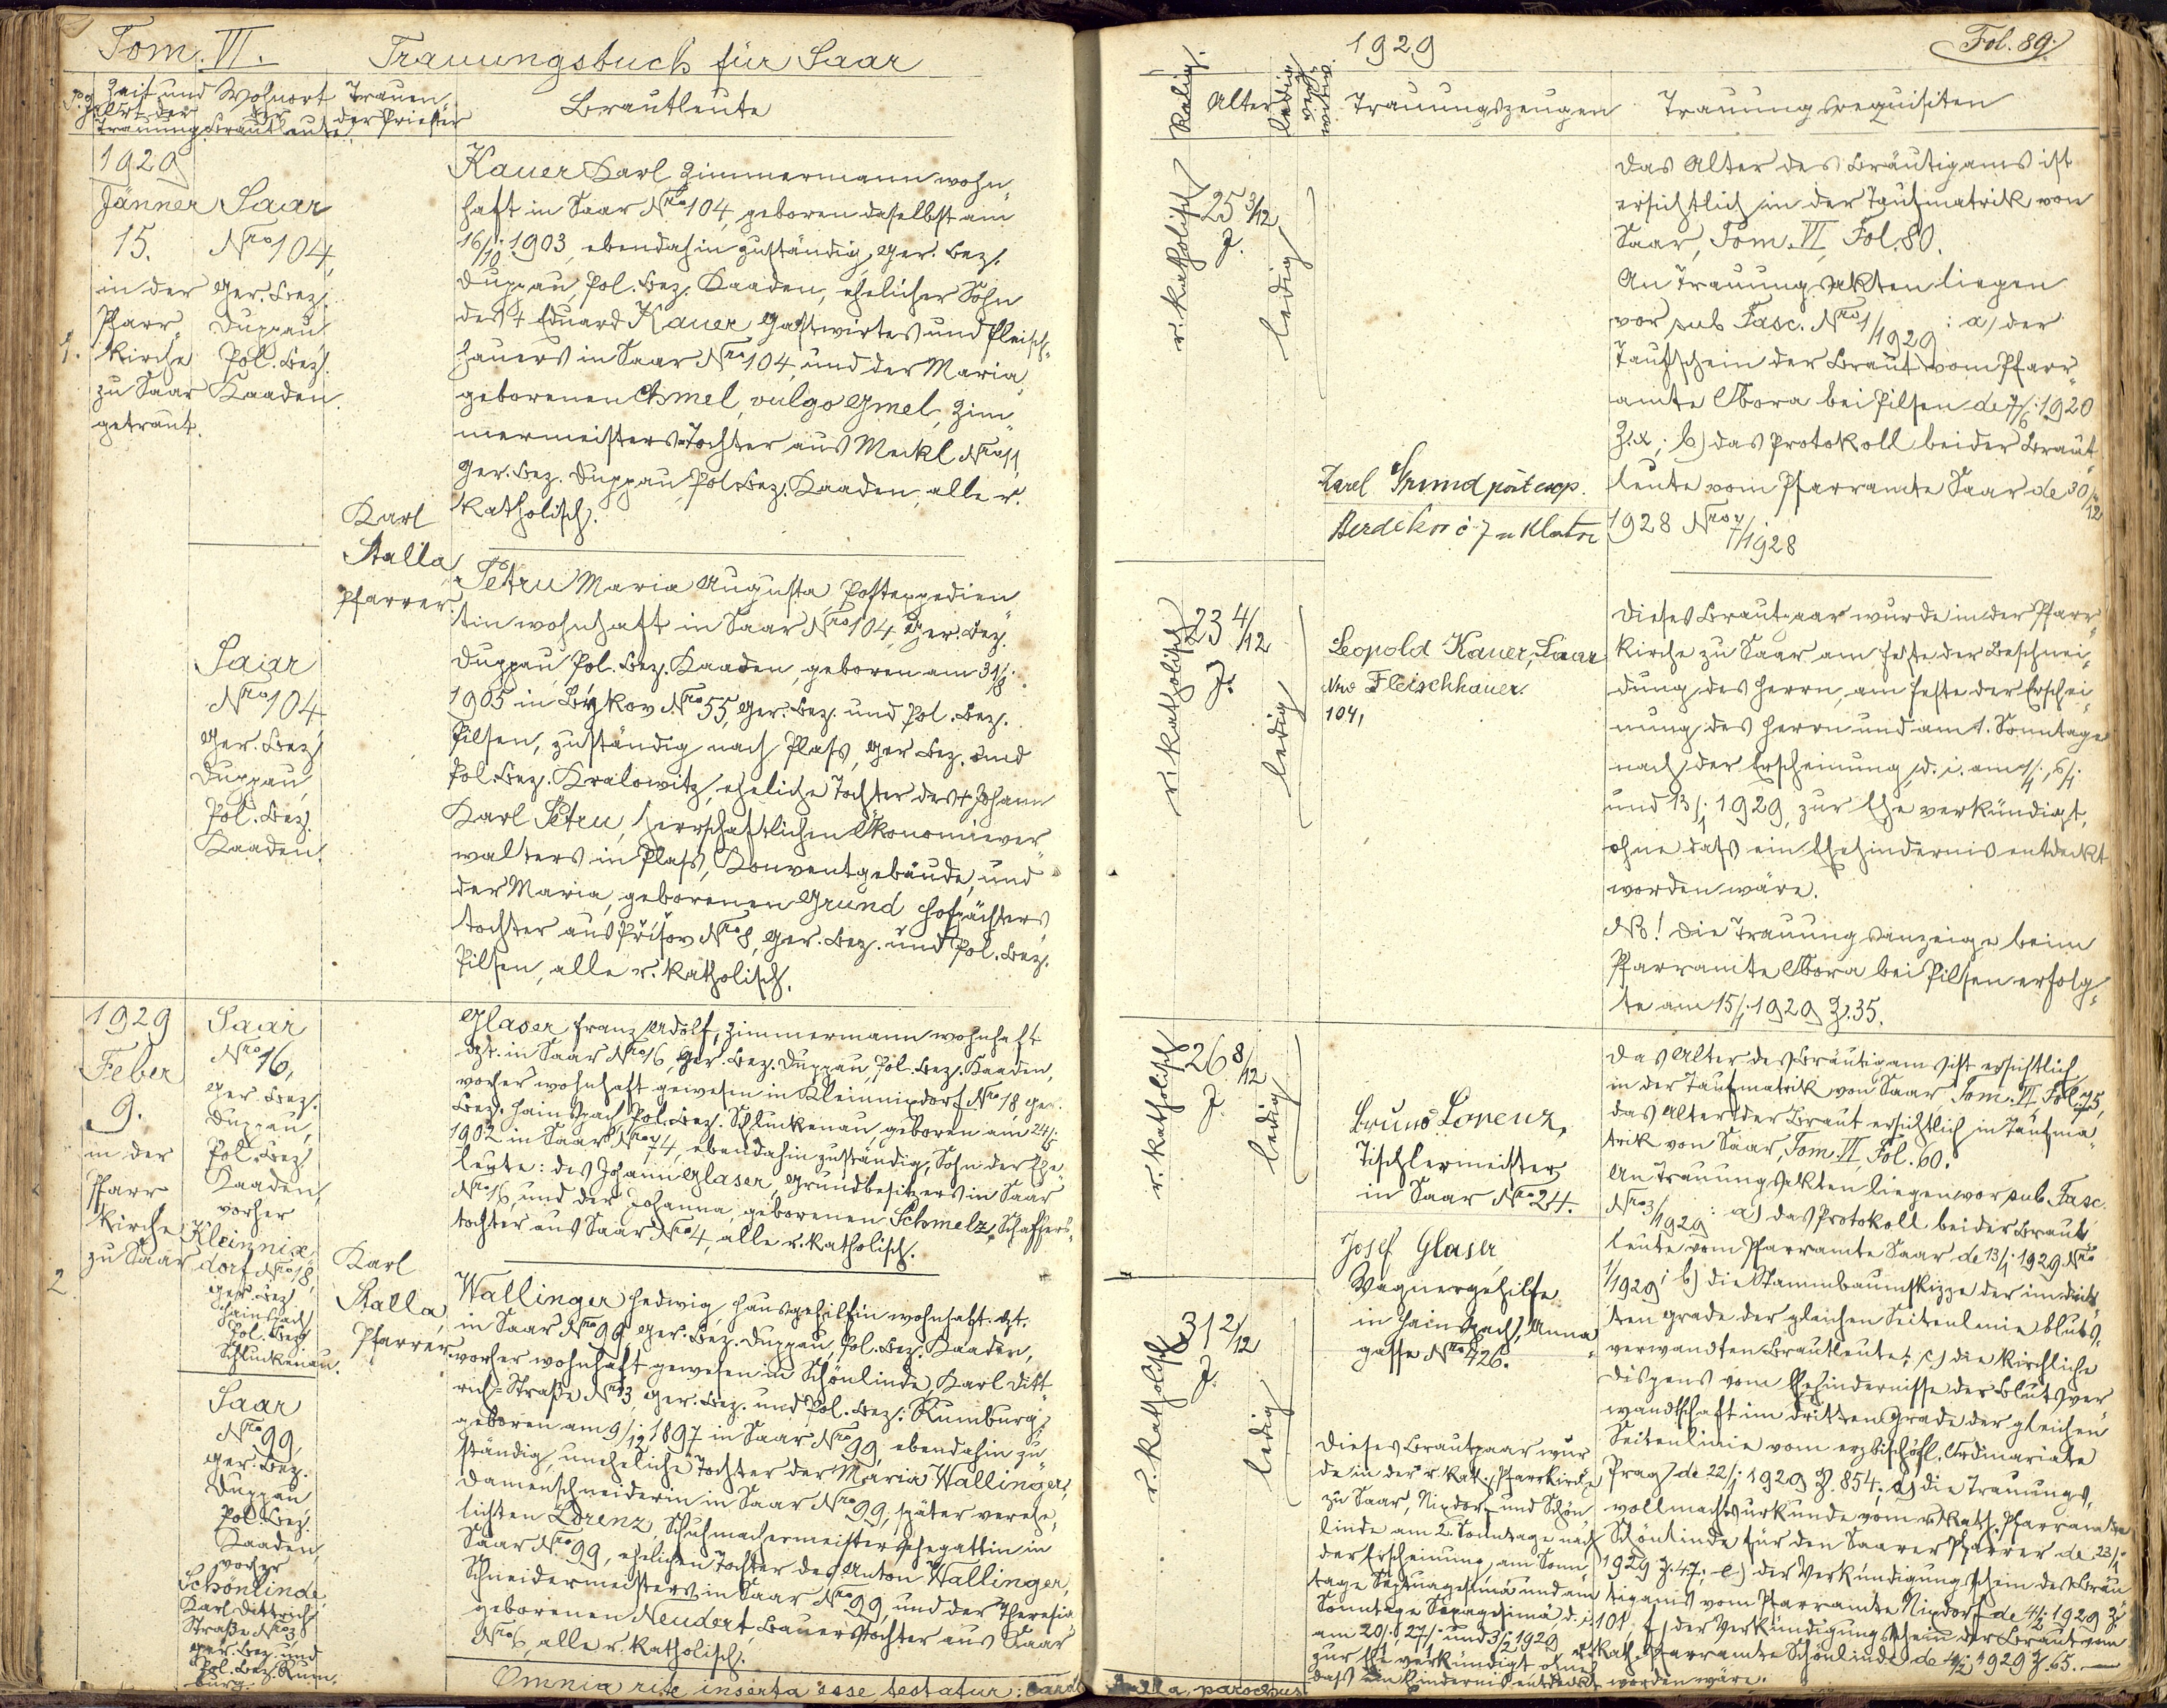 Tom. VI.
Trauungsbuch für Saar
1929
Fol. 89.
Zeit und Ort der Trauung
Wohnort der Brautleute
Trauender Priester
Brautleute
Relig.
Alter
ledig
Trauungszeugen
Trauungsrequisiten
1.
1929
Jänner
15.
in der
Pfarr
kirche
zu Saar
getraut.
Saar
Nro 104,
Ger. Bez.
Duppau,
Pol. Bez.
Kaaden.
Karl
Stalla,
Pfarrer.
Kauer Karl Zimmermann wohn„
haft in Saar Nro 104, geboren daselbst am
16/10. 1903, ebendahin zuständig, Ger. Bez.
Duppau, Pol. Bez. Kaaden, ehelicher Sohn
des † Eduard Kauer Gastwirtes und Fleisch„
hauers in Saar Nro 104, und der Maria,
geborenen Chmel, vulgo Gmel, Zim„
mermeisters-Tochter aus Meckl Nro 11,
Ger. Bez. Duppau, Pol. Bez. Kaaden, alle r.
katholisch.
Saar
Nro 104
Ger. Bez.
Duppau,
Pol. Bez.
Kaaden.
Petru Maria Augusta, Postexpedien„
tin wohnhaft in Saar Nro 104, Ger. Bez.
Duppau, Pol. Bez. Kaaden, geboren am 31/8.
1905 in Bykov Nro 55, Ger. Bez. und Pol. Bez.
Pilsen, zuständig nach Plass, Ger. Bez. und
Pol. Bez. Kralowitz, eheliche Tochter des † Johann
Karl Petru, herrschaftlichen Ökonomiever„
walters in Plass, Konventgebäude, und
der Maria, geborenen Grund Hofpächters
tochter aus Příšov Nro 8, Ger. Bez. und Pol. Bez.
Pilsen, alle r. katholisch.
r. katholisch
25 3/12
J.
ledig
r. katholisch
23 4/12
J.
ledig
Karel Grund
Leopold Kauer, Saar
Nro Fleischhauer.
104,
Das Alter des Bräutigams ist
ersichtlich in der Taufmatrik von
Saar, Tom. VI, Fol. 80.
An Trauungsakten liegen
vor sub Fasc. Nro 1/1929: a) der
Taufschein der Braut vom Pfarr„
amte Obora bei Pilsen de 7/6. 1920
b) das Protokoll beider Braut„
leute vom Pfarramte Saar de 30/12
1928 Nro 7/1928
Dieses Brautpaar wurde in der Pfarr„
kirche zu Saar am Feste der Beschnei„
dung des Herrn, am Feste der Erschei„
nung des Herrn und am 1. Sonntage
nach der Erscheinung, d. i. am 1/1., 6/1.
und 13/1. 1929, zur Ehe verkündigt,
ohne dass ein Ehehindernis entdeckt
worden wäre.
NB! Die Trauungsanzeige beim
Pfarramte Obora bei Pilsen erfolg„
te am 15/1. 1929 Z. 35.
2
1929
Feber
9.
in der
Pfarr
kirche
zu Saar
Saar
Nro 16,
Ger. Bez.
Duppau,
Pol. Bez.
Kaaden,
vorher
Kleinnix
dorf Nro 18,
Ger. Bez.
Hainspach,
Pol. Bez.
Schluckenau.
Karl
Stalla,
Pfarrer
Glaser Franz Adolf, Zimmermann wohnhaft
dzt. in Saar Nro 16, Ger. Bez. Duppau, Pol. Bez. Kaaden,
vorher wohnhaft gewesen in Kleinnixdorf Nro 18, Ger.
Bez. Hainspach, Pol. Bez. Schluckenau, geboren am 24/5
1902 in Saar Nro 74, ebendahin zuständig, Sohn der Ehe„
leute: des Johann Glaser, Grundbesitzers in Saar
Nro 16, und der Johanna, geborenen Schmelz, Schaffers„
tochter aus Saar Nro 4, alle r. katholisch.
Saar
Nro 99,
Ger. Bez.
Duppau,
Pol. Bez.
Kaaden,
vorher
Schönlinde,
Karl Dittrich
Straße Nro 3
Ger. Bez. und
Pol. Bez. Rum„
burg
Wallinger Hedwig, Hausgehilfin wohnhaft dzt.
in Saar Nro 99, Ger. Bez. Duppau, Pol. Bez. Kaaden,
vorher wohnhaft gewesen in Schönlinde, Karl Ditt„
rich-Straße Nro 3, Ger. Bez. und Pol. Bez. Rumburg,
geboren am 9/12 1897 in Saar Nro 99, ebendahin zu„
ständig, uneheliche Tochter der Maria Wallinger,
Damenschneiderin in Saar Nro 99, später verehe„
lichten Lorenz, Schuhmachermeistersehegattin in
Saar Nro 99, ehelichen Tochter des Anton Wallinger,
Schneidermeisters in Saar Nro 99, und der Theresia,
geborenen Neudert, Bauerstochter aus Saar
Nro 6, alle r. katholisch.
r. katholisch
26 8/12
J.
ledig
r. katholisch
31 2/12
J.
ledig
Bruno Lorenz,
Tischlermeister
in Saar Nro 24.
Josef Glaser,
Wagnergehilfe
in Hainspach, Anna„
gasse Nro 426.
Dieses Brautpaar wur
de in der r. kath. Pfarrkirche
zu Saar, Nixdorf und Schön„
linde am 2. Sonntage nach
der Erscheinung, am Sonn„
tage Septuagesima und am
Sonntage Sexagesima, d. i.
am 20/1., 27/1. und 3/2. 1929
zur Ehe verkündigt ohne
dass ein Hindernis entdeckt worden wäre.
Das Alter des Bräutigams ist ersichtlich
in der Taufmatrik von Saar Tom. VI, Fol. 75,
das Alter der Braut ersichtlich in Taufma„
trik von Saar, Tom. VI, Fol. 60.
An Trauungsakten liegen vor sub Fasc.
Nro 3/1929: a) das Protokoll beider Braut„
leute vom Pfarramte Saar de 13/1. 1929 Nro
1/1929; b) die Stammbaumskizze der im drit„
ten Grade der gleichen Seitenlinie bluts„
verwandten Brautleute; c) die kirchliche
Dispens vom Ehehindernisse der Blutsver
wandtschaft im dritten Grade der gleichen
Seitenlinie vom erzbischöfl. Ordinariate
Prag de 22/1. 1929 Z. 854; d) die Trauungs„
vollmachtsurkunde vom r. kath. Pfarramte
Schönlinde für den Saarer Pfarrer de 23/1.
1929 Z. 47; e) der Verkündigungsschein des Bräu
tigams vom Pfarramte Nixdorf de 4/2. 1929 Z.
101; f) der Verkündigungsschein der Braut vom
r. kath. Pfarramte Schönlinde de 4/2. 1929 Z. 65.
Omnia rite inserta esse testatur: Carol Stalla, parochus